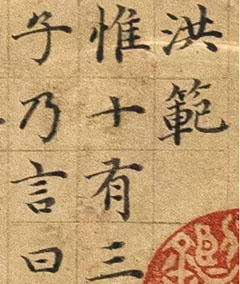 洪範
惟十有三
子乃言曰